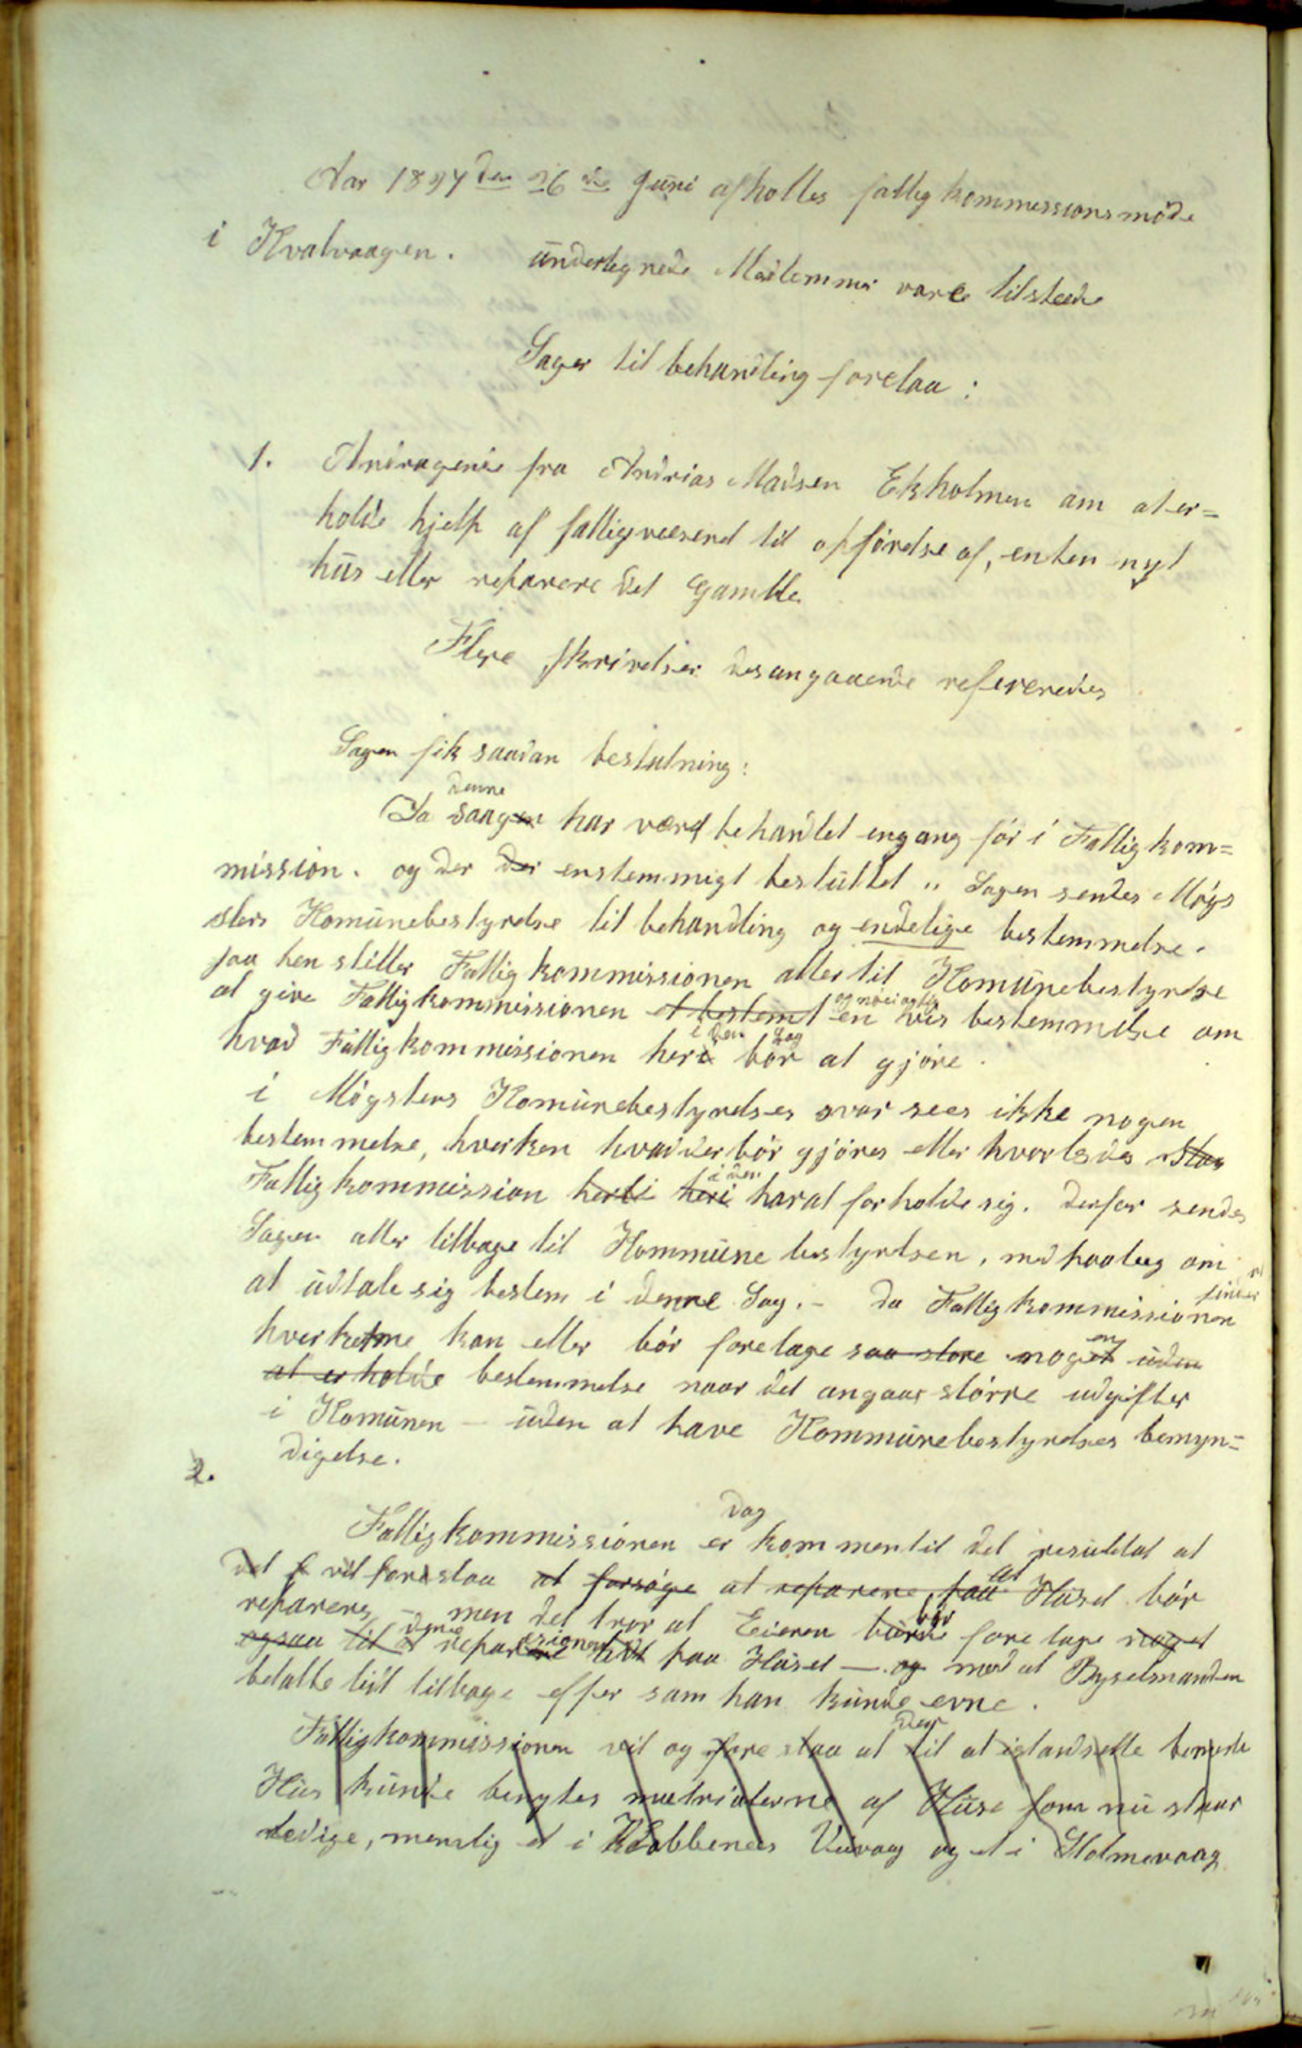 Aar 1897 den 26de Juni afholtes fattigkommissionsmöde
i Hvalvaagen. undertegnede Medlemmer vare tilstede
Sager til behandling forelaa:
1. Andragende fra Andrias Madsen Ekholmen om at er=
holde hjelp af fattigvesenet til opförelse af, enten nyt
hus eller reparere det gamle
Flere skrivelser desangaaende refereredes
Sagen fik saadan beslutning:
denne
Da saagen har været behandlet engang för i Fattigkom=
mission. og der der enstemmigt besluttet „ Sagen sendes Mögs
sters Komunebestyrelse til behandling og endelige bestemmelse.
paa hen stiller Fattigkommissionen atter til Komunebestyrelse
og nöiagtig
at give Fattigkommissionen et bestemt en vis bestemmelse om
i den Sag
hvad Fattigkommissionen heri bör at gjöre.
i Mögsters Komunebestyrelses svar sees ikke nogen
bestemmelse, hverken hvad der bör gjöres eller hvorledes
i den
Fattigkommission heri har at forholde sig. derfor sendes
Sagen atter tilbage til Kommune bestyrelsen, med paalæg om
at udtale sig bestem i denne Sag. - da Fattigkommissionen
finder
hverken kan eller bör foretage saa store noget uden
en
at erholde bestemmelse naar det angaar större udgifter
i Komunen - uden at have Kommunebestyrelses bemyn=
digelse.
2.
dog
Fattigkommissionen er kommen til det resultat at
det vil foreslaa at forsöge at reparere, paa at Huset bör
repareres - men det tror at Eieren burde bör foretage noget
ogsaa til denne paa Huset — og med at Bygselmanden
betalte lidt tilbage efter som han kunde evne.
der
Fattigkommissionen vil og fore slaa at til at istandsette
Hus kunde benyttes matrialerne af Huse som nu staar
ledige, nemlig et i Vevaag og et i Holmevaag